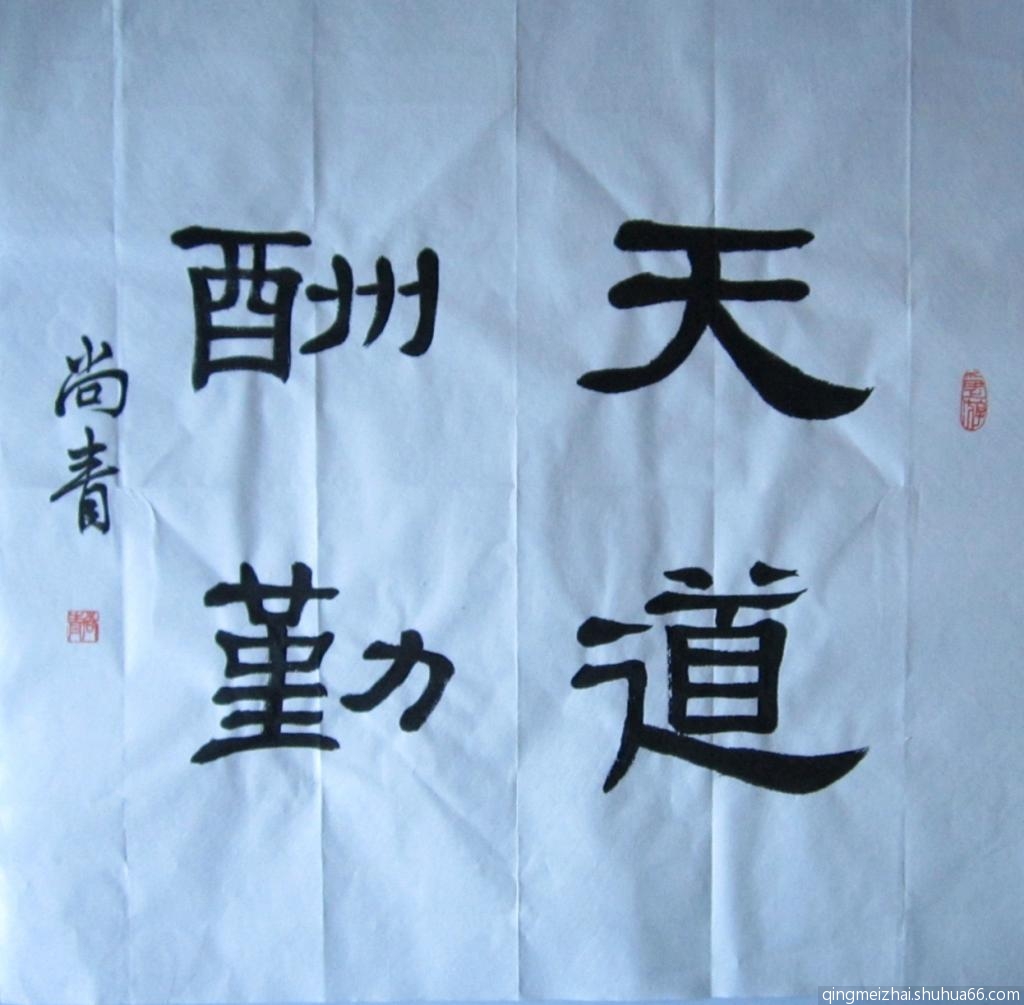 天道
酬勤
尚青
qingmeizhai.shuhua66.com